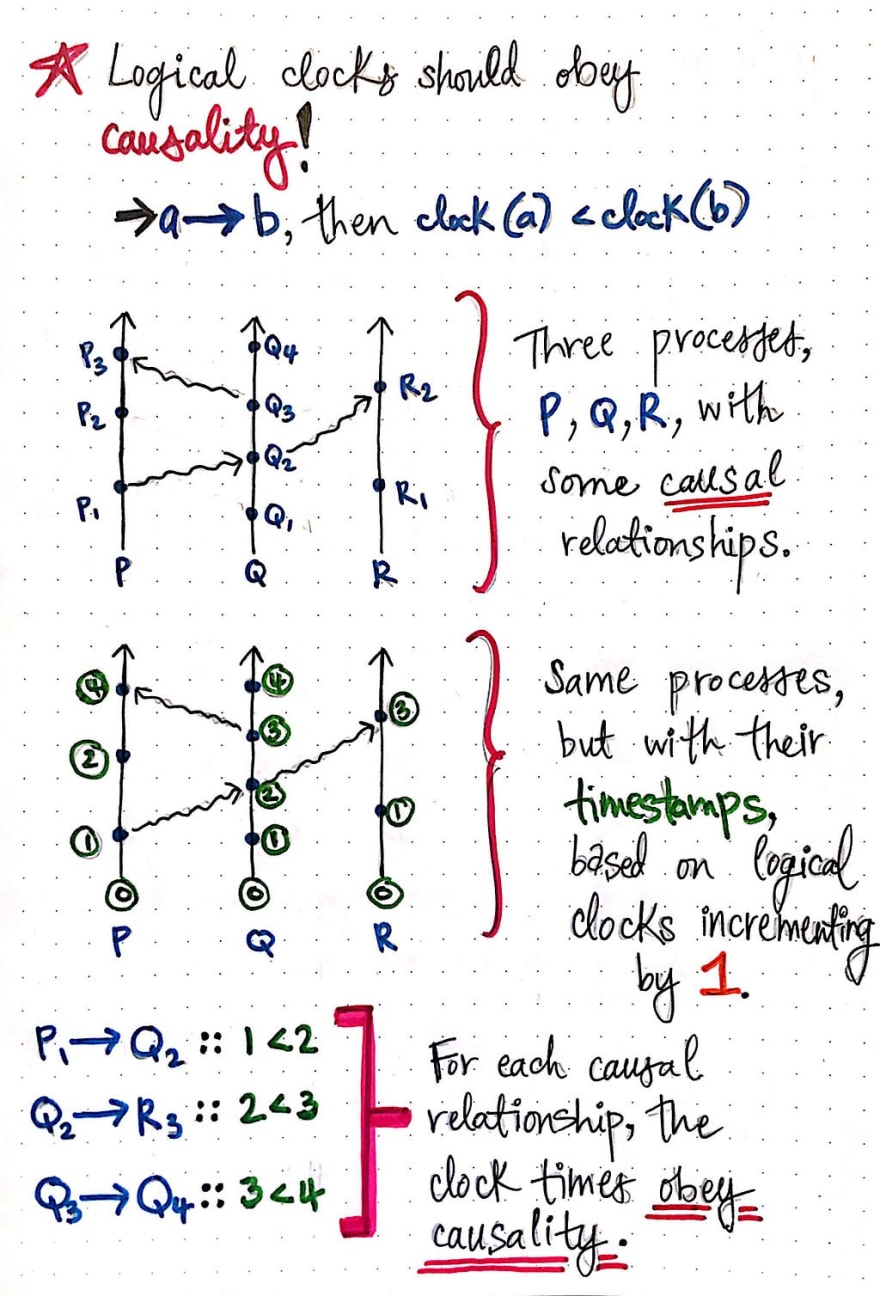 ☆ Logical clocks should obey
causality!
→ a → b, then clock (a) < clock(b)
P₃
P₂
P₁
P
Q₄
Q₃
Q₂
Q₁
Q
R₂
R₁
R
Three processes,
P, Q, R, with
some causal
relationships.
4
2
1
0
P
4
3
2
1
0
Q
3
1
0
R
Same processes,
but with their
timestamps,
based on logical
clocks incrementing
by 1.
P₁ → Q₂ :: 1 < 2
Q₂ → R₃ :: 2 < 3
Q₃ → Q₄ :: 3 < 4
For each causal
relationship, the
clock times obey
causality.